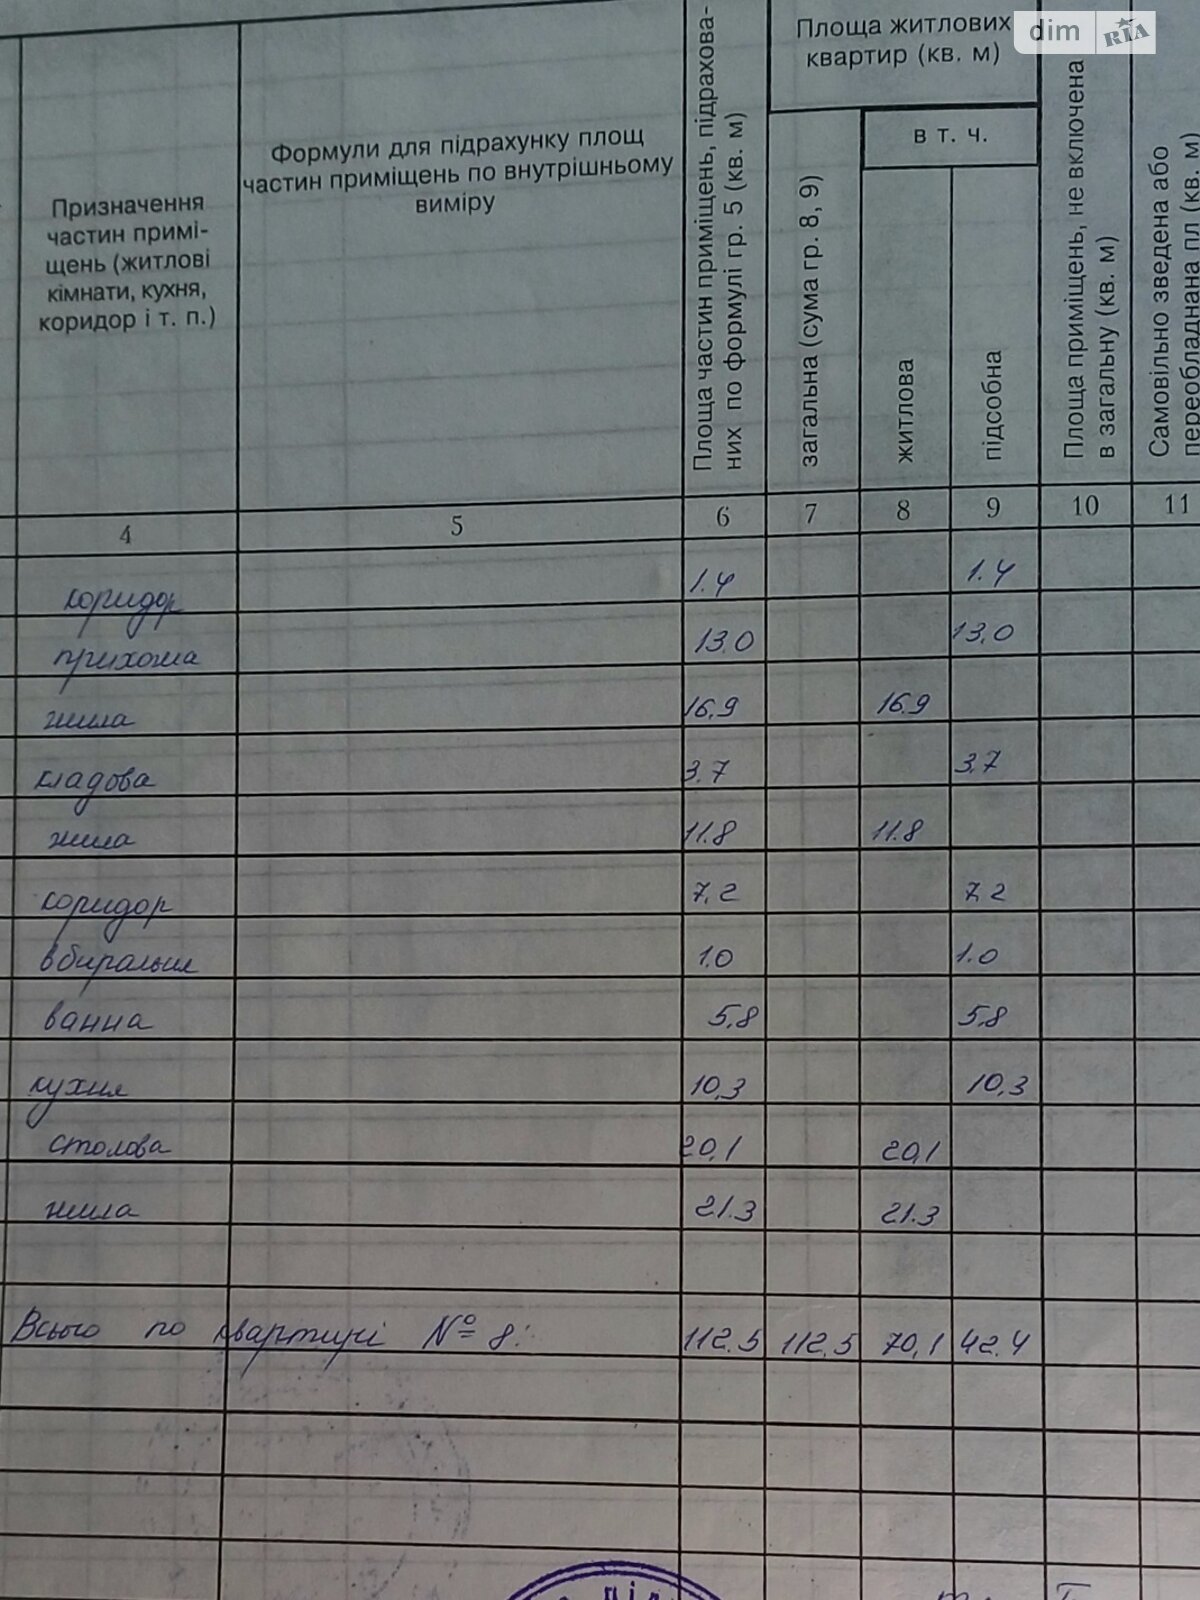 dim RIA
Призначення
частин примі-
щень (житлові
кімнати, кухня,
коридор і т. п.)
Формули для підрахунку площ
частин приміщень по внутрішньому
виміру
Площа частин приміщень, підрахова-
них по формулі гр. 5 (кв. м)
Площа житлових
квартир (кв. м)
загальна (сума гр. 8, 9)
в т. ч.
житлова
підсобна
Площа приміщень, не включена
в загальну (кв. м)
Самовільно зведена або
переобладнана пл (кв. м)
4 5 6 7 8 9 10 11
коридор 1.4 1.4
прихожа 13.0 13.0
жила 16.9 16.9
кладова 3.7 3.7
жила 11.8 11.8
коридор 7,2 7,2
вбиральня 1.0 1.0
ванна 5,8 5,8
кухня 10,3 10,3
столова 20,1 20,1
жила 21.3 21.3
Всього по квартирі № 8: 112.5 112.5 70,1 42.4